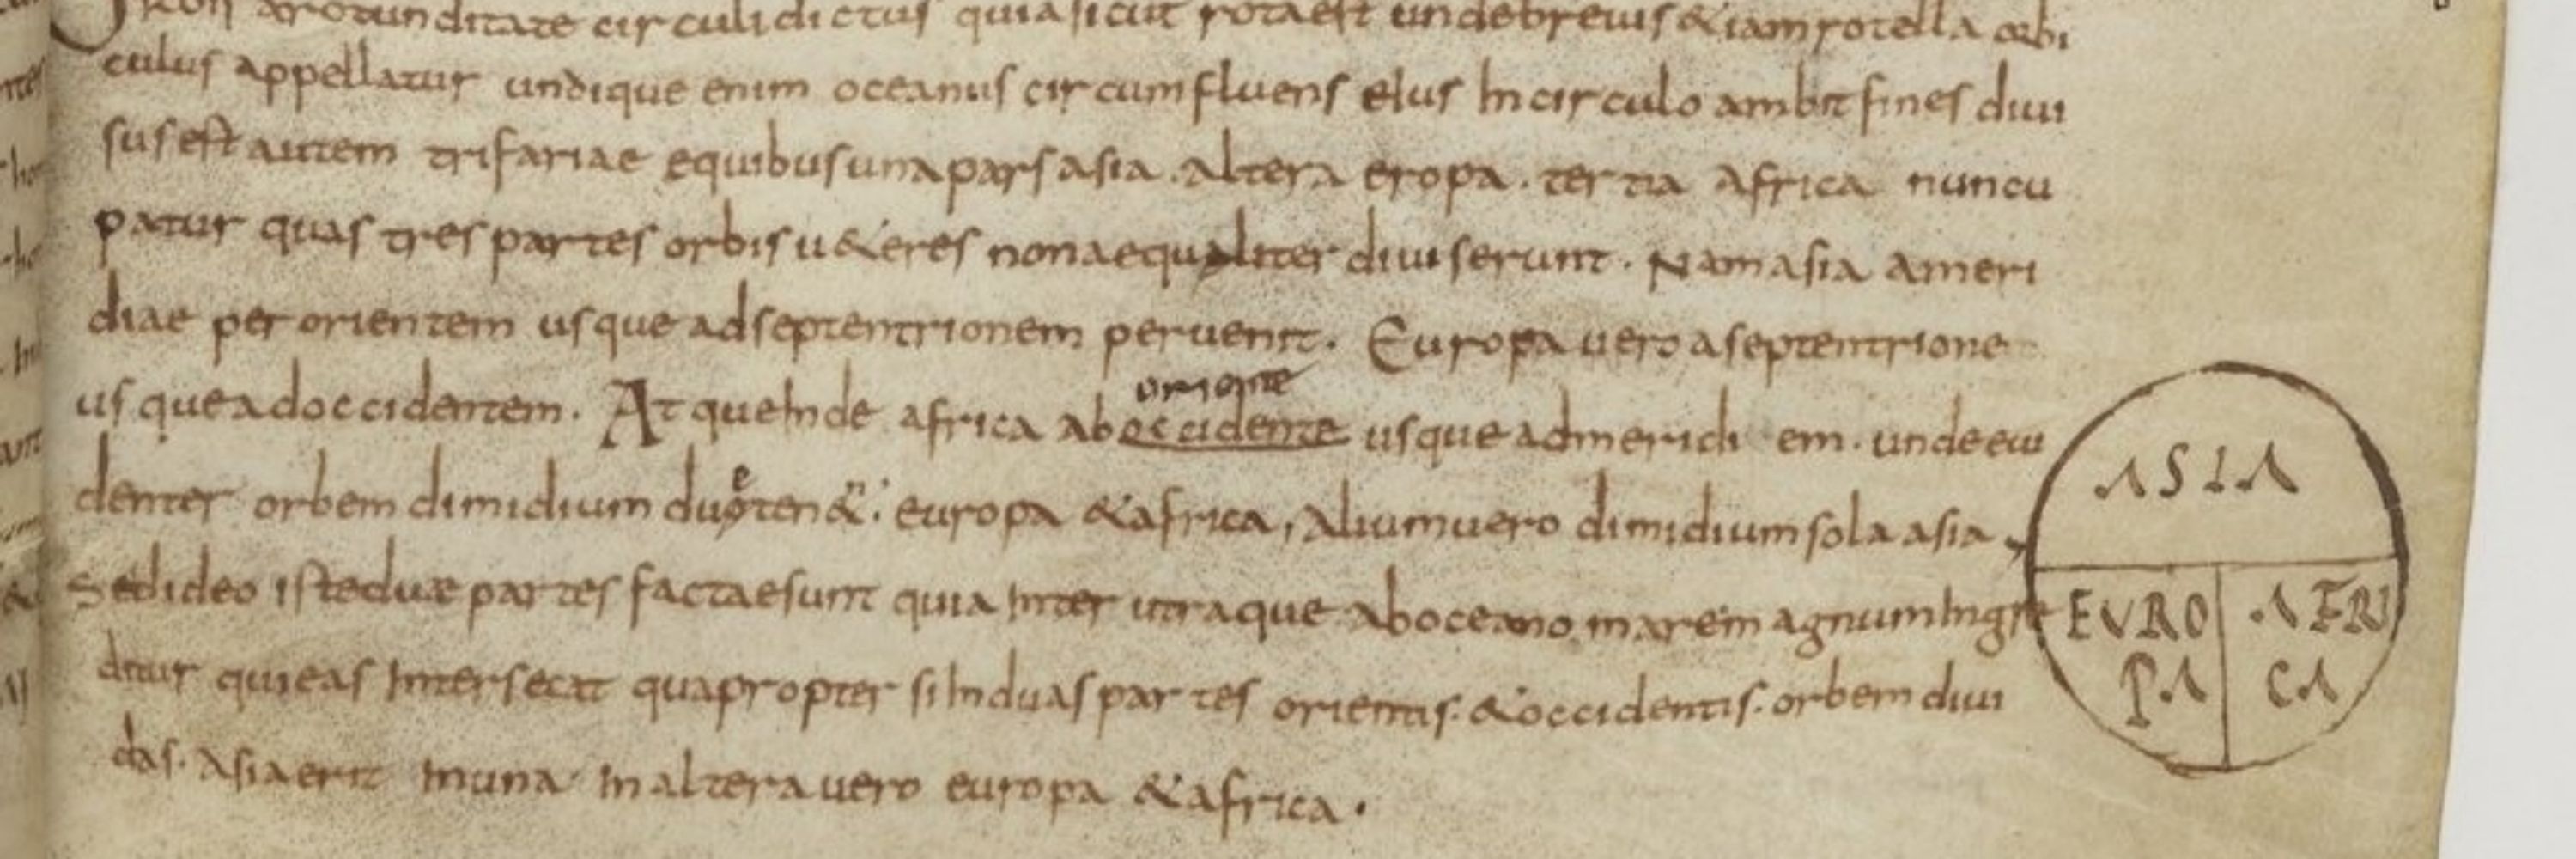 arotunditate circuli dictus quia sicut rota est unde breuis &iam rotella orbi
culus appellatur undique enim oceanus circumfluens eius In circulo ambit fines diui
sus est autem trifariae e quibus una pars asia . altera eropa . tertia africa nuncu
patur quas tres partes orbis u&eres non aequaliter diuiserunt . Nam asia a meri
diae per orientem usque ad septentrionem peruenit . Europa uero a septentrione
usque ad occidentem . Atque Inde africa ab occidente usque ad meridi em . unde eui
oriente
denter orbem dimidium duo ten& . europa & africa , alium uero dimidium sola asia
Sed ideo iste duae partes factae sunt quia Inter utraque ab oceano marem agnum Ingre
ditur qui eas Intersecat quapropter si In duas partes orientis . & occidentis . orbem diui
das . Asia erit In una In altera uero europa & africa .
ASIA
EVRO
PA
AFRI
CA